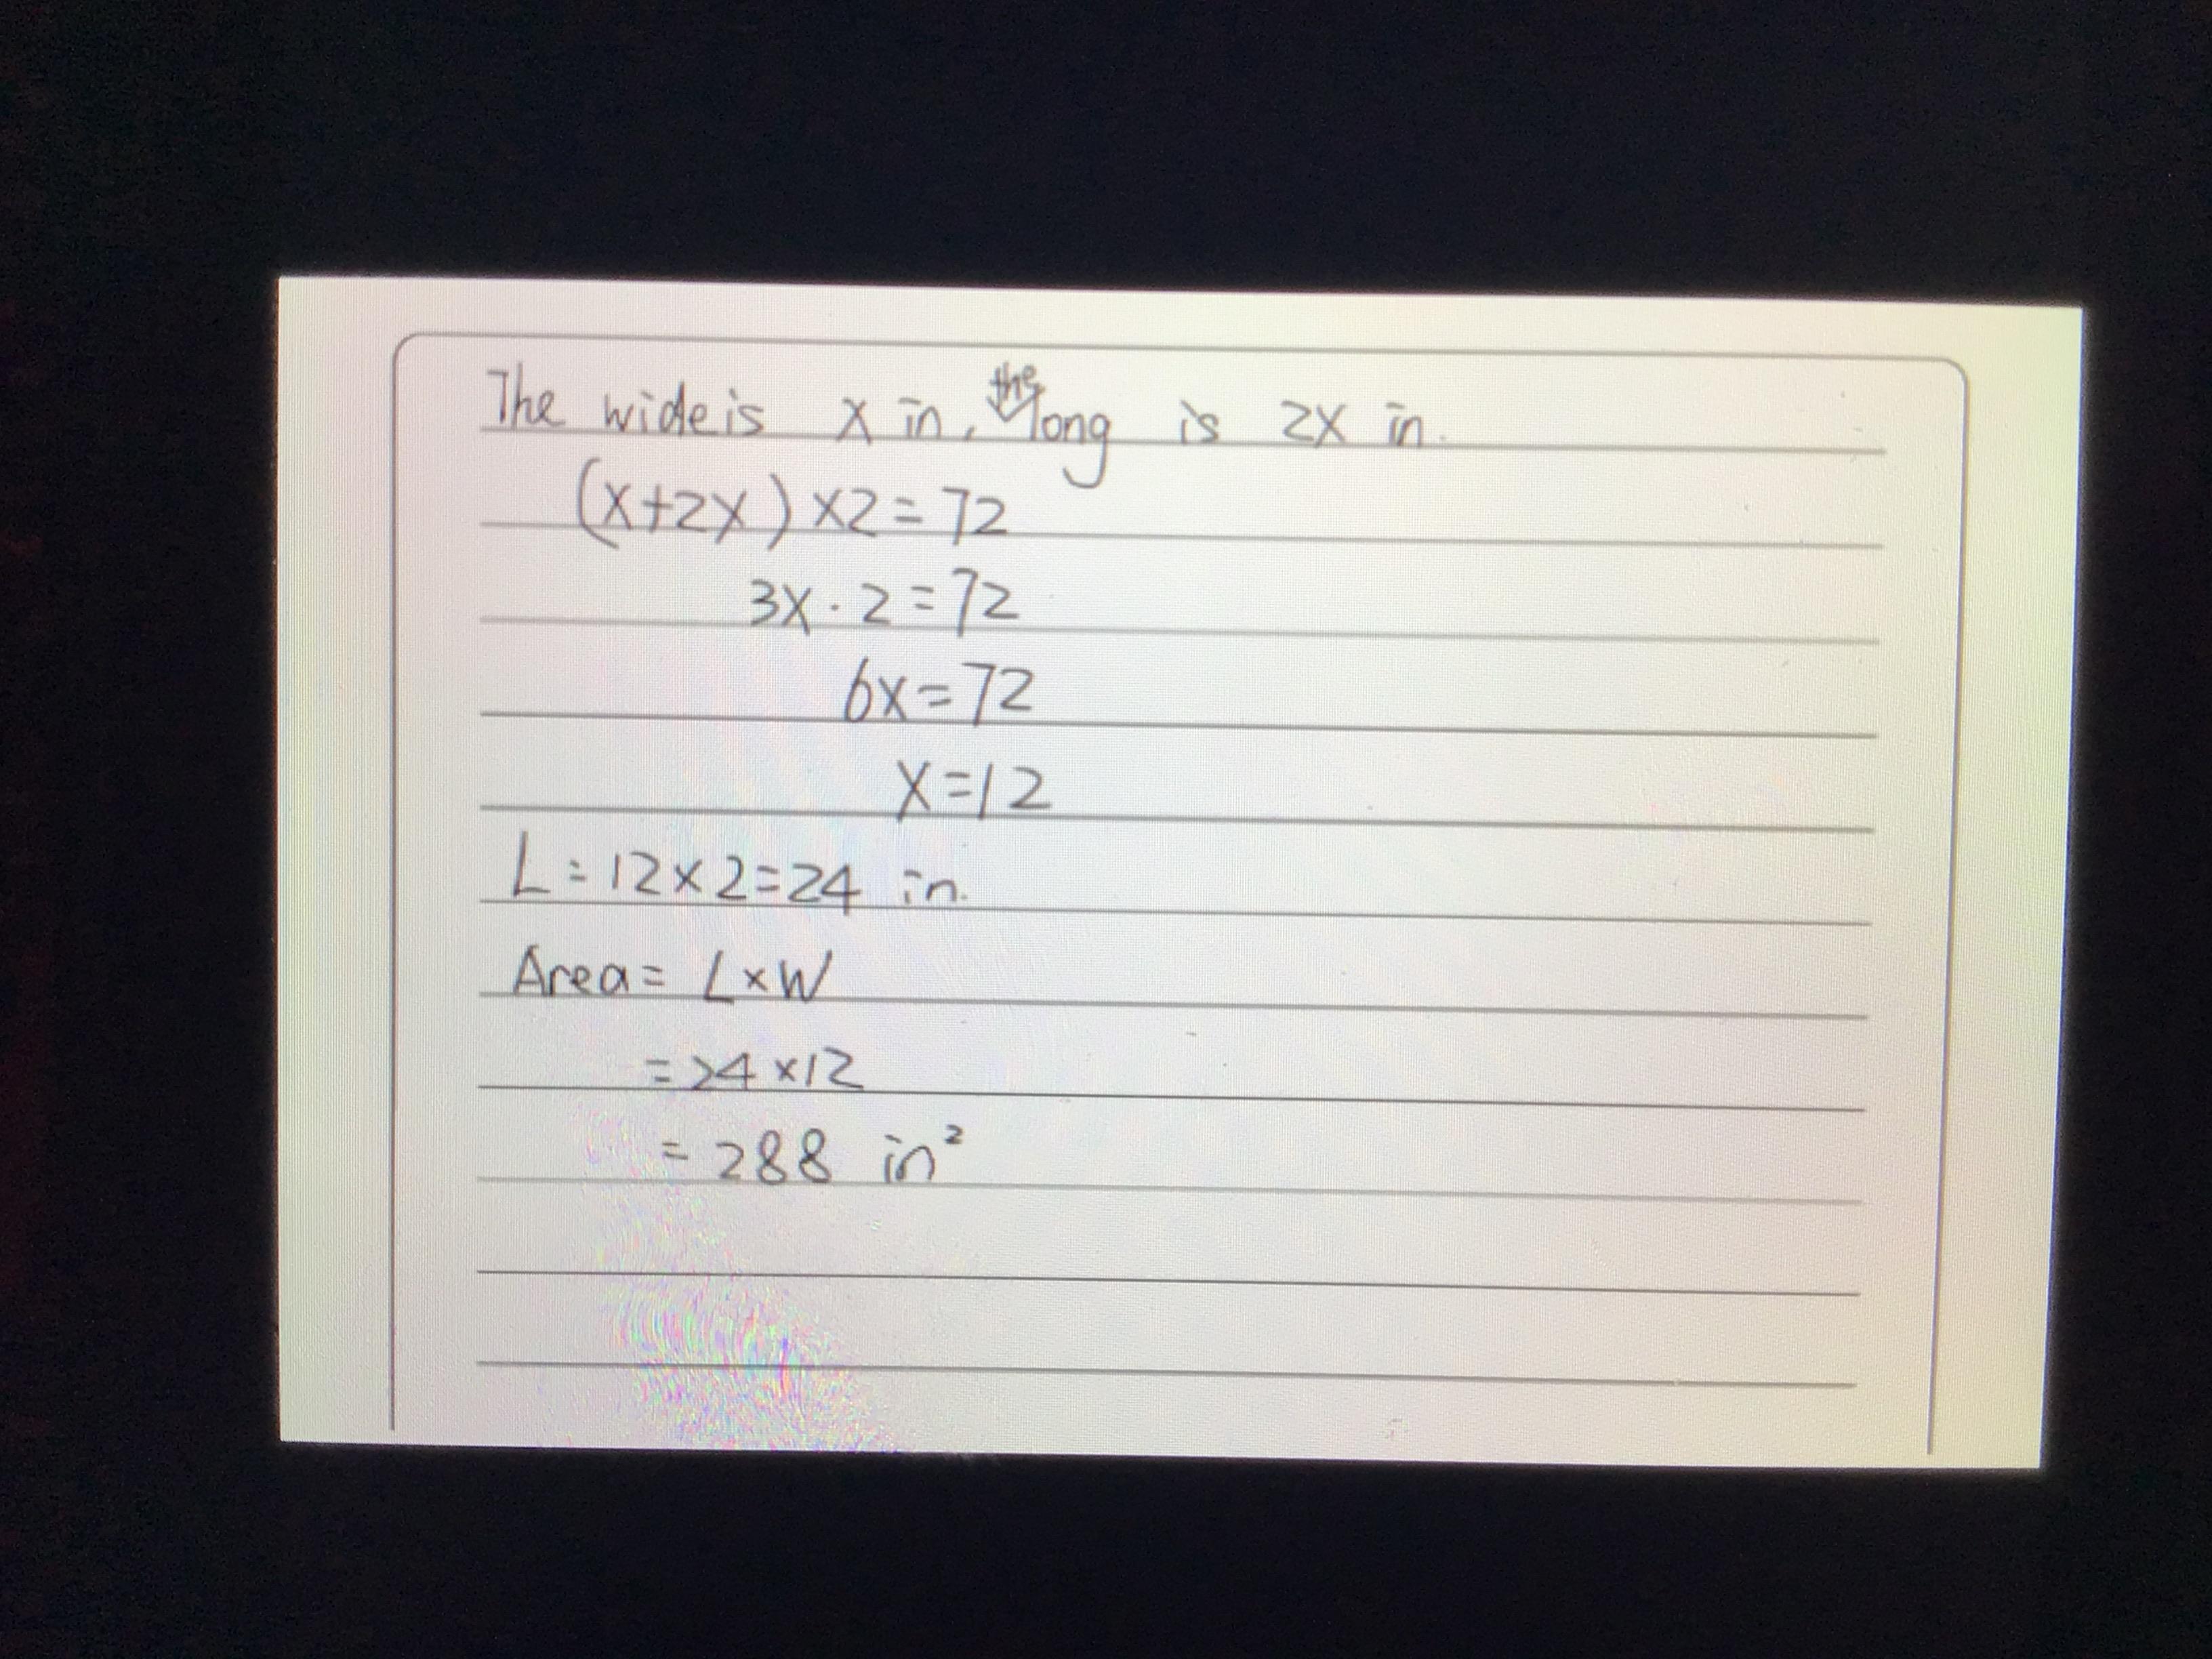 The wide is x in, the long is 2x in.
(x+2x)×2=72
3x·2=72
6x=72
x=12
L=12×2=24 in.
Area= L×W
=24×12
=288 in²